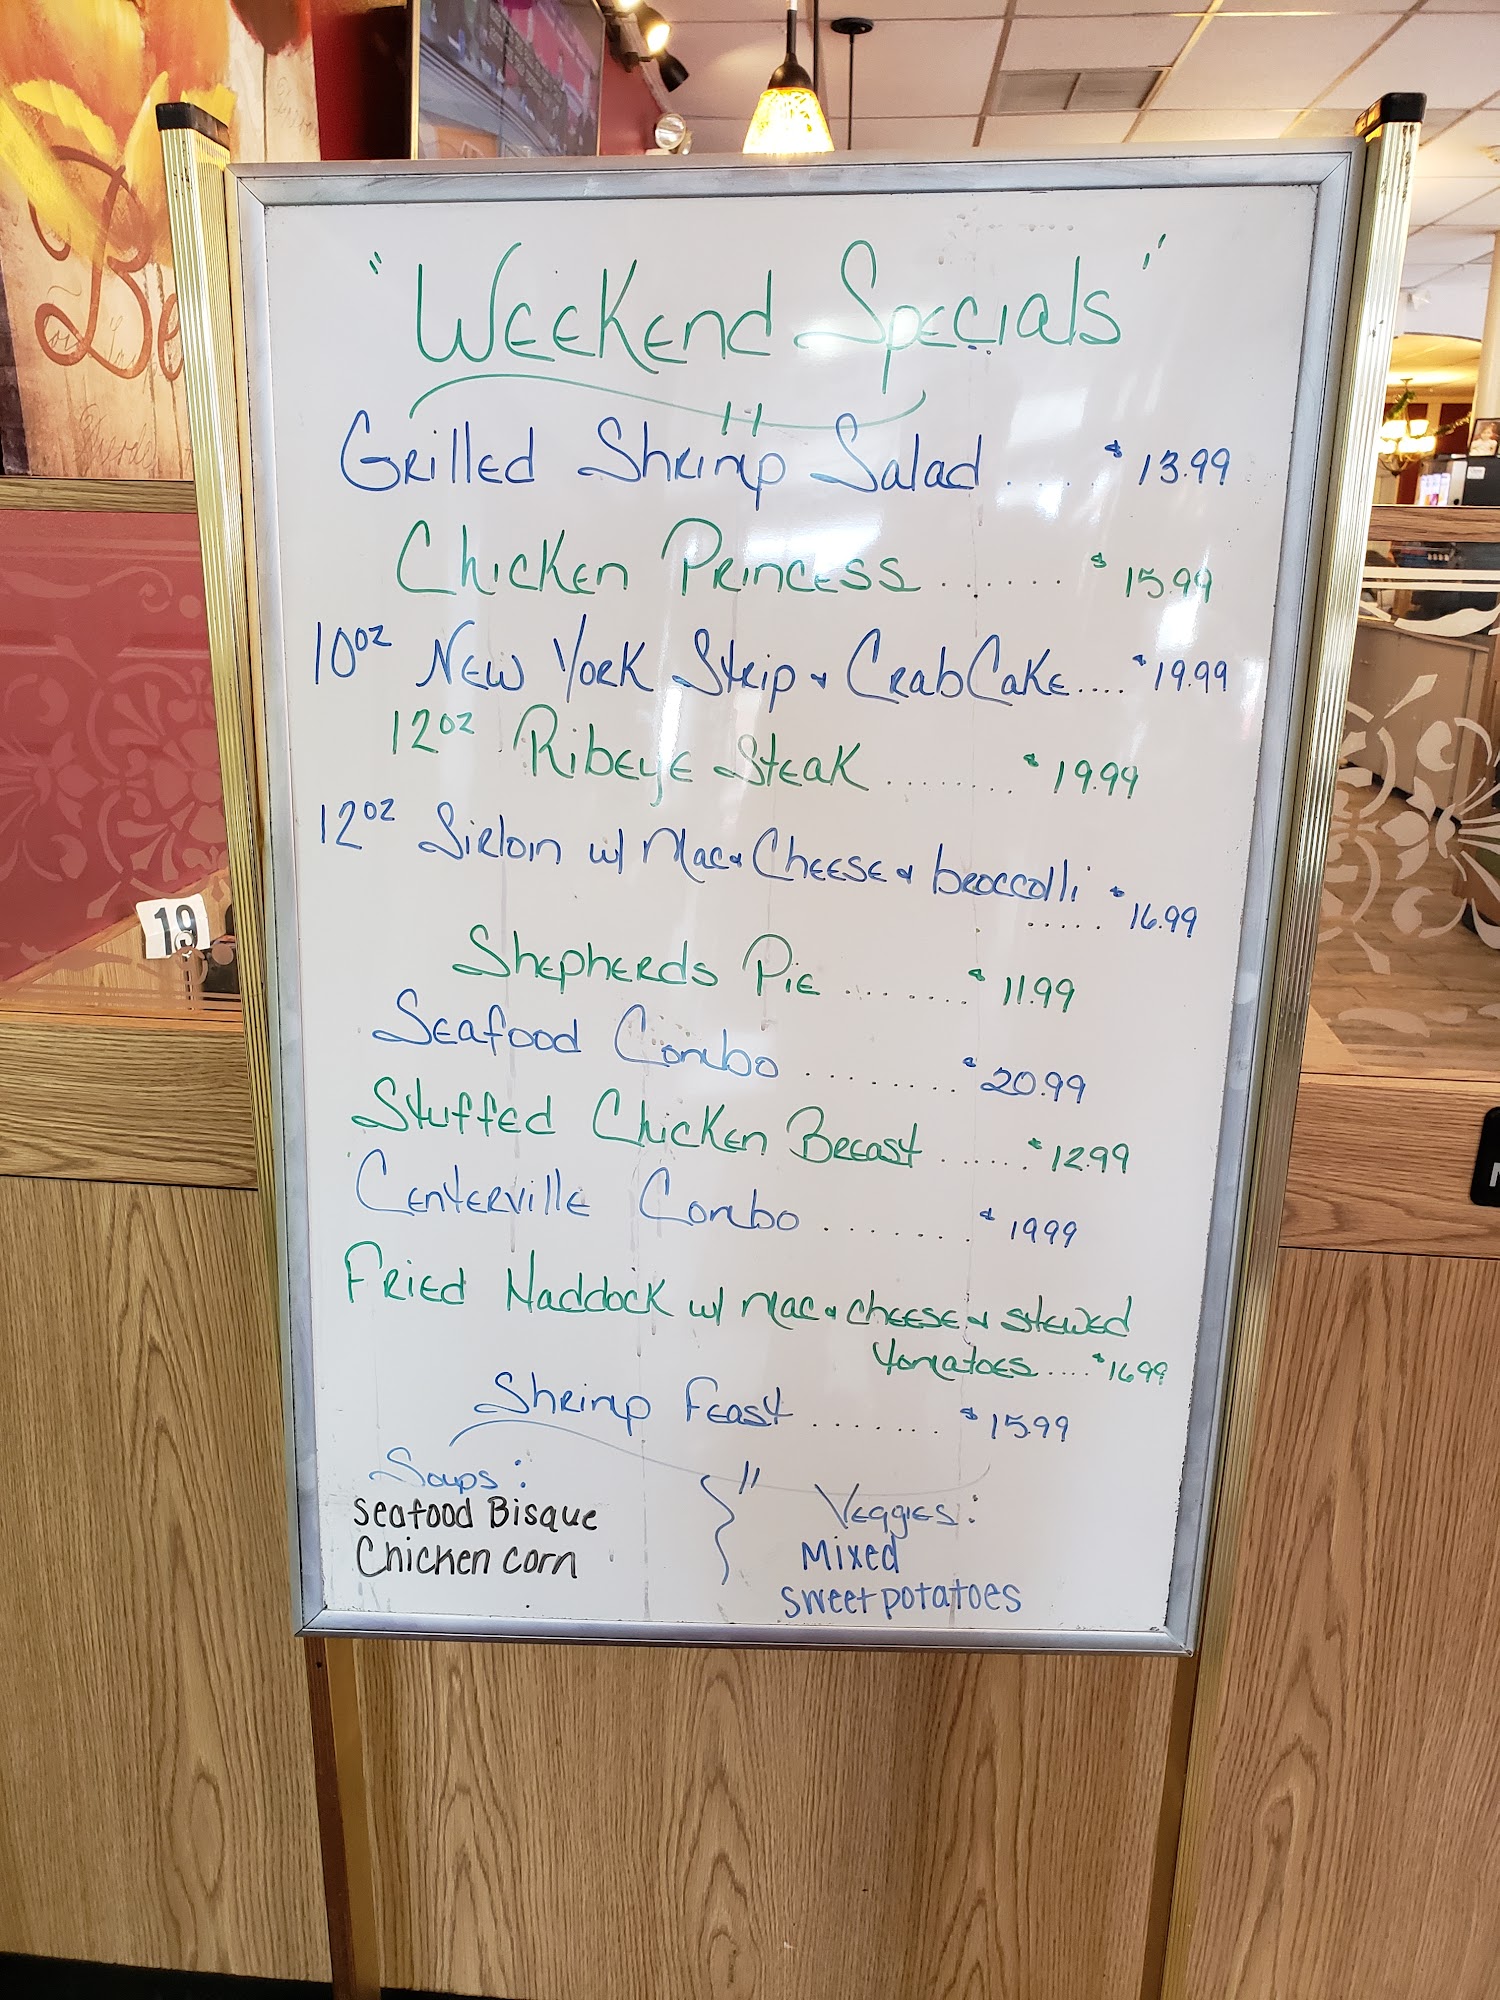 "Weekend Specials"
Grilled Shrimp Salad .... $13.99
Chicken Princess ....... $15.99
10oz New York Strip & Crab Cake.... $19.99
12oz Ribeye Steak ........ $19.99
12oz Sirloin w/ Mac & Cheese & broccolli
..... $16.99
Shepherds Pie ........ $11.99
Seafood Combo ........ $20.99
Stuffed Chicken Breast ...... $12.99
Centerville Combo ....... $1999
Fried Haddock w/ mac & cheese & stewed
tomatoes .... $1699
Shrimp Feast ....... $15.99
Soups:
Seafood Bisque
Chicken corn
Veggies:
Mixed
sweet potatoes
Be
19